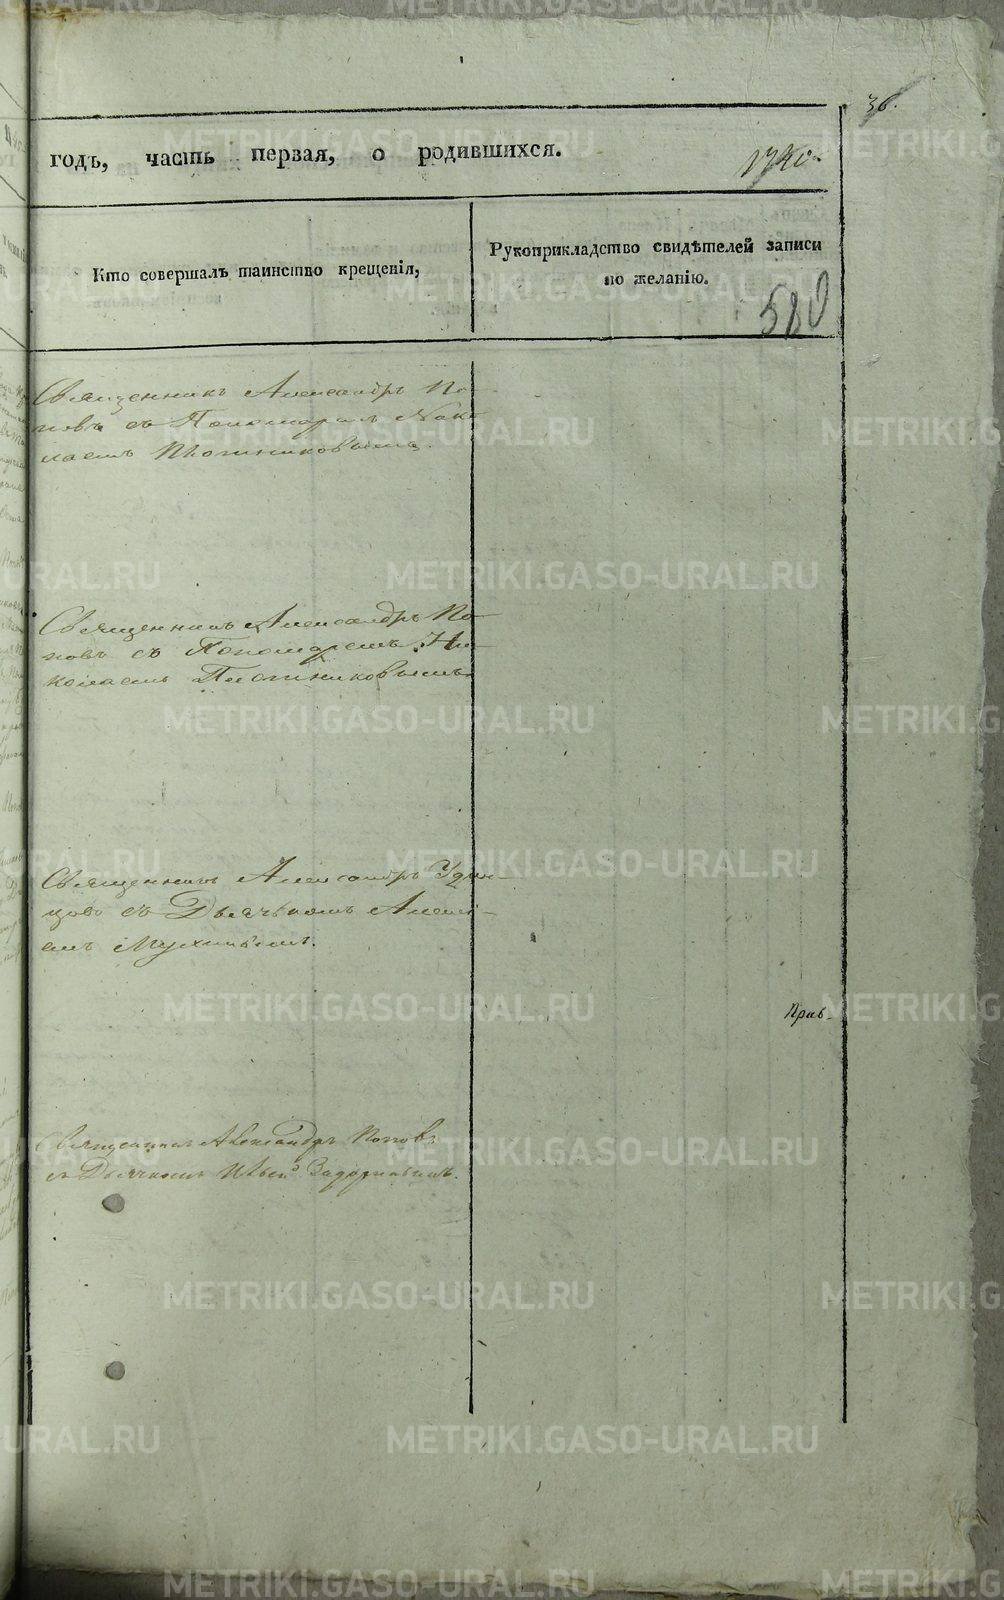 36.
годъ, часть первая, о родившихся.
Кто совершалъ таинство крещенія,
Рукоприкладство свидѣтелей записи
по желанію.
580
Священникъ Александръ По-
повъ съ Пономаремъ Нико-
лаемъ Плотниковымъ.
Священникъ Александръ По-
повъ съ Пономаремъ Ни-
колаемъ Плотниковымъ
Священникъ Александръ Удин-
цовъ съ Дьячкомъ Алексѣ-
емъ Мухинымъ.
Прав-
Священникъ Александръ Поповъ
съ Дьячкомъ
METRIKI.GASO-URAL.RU